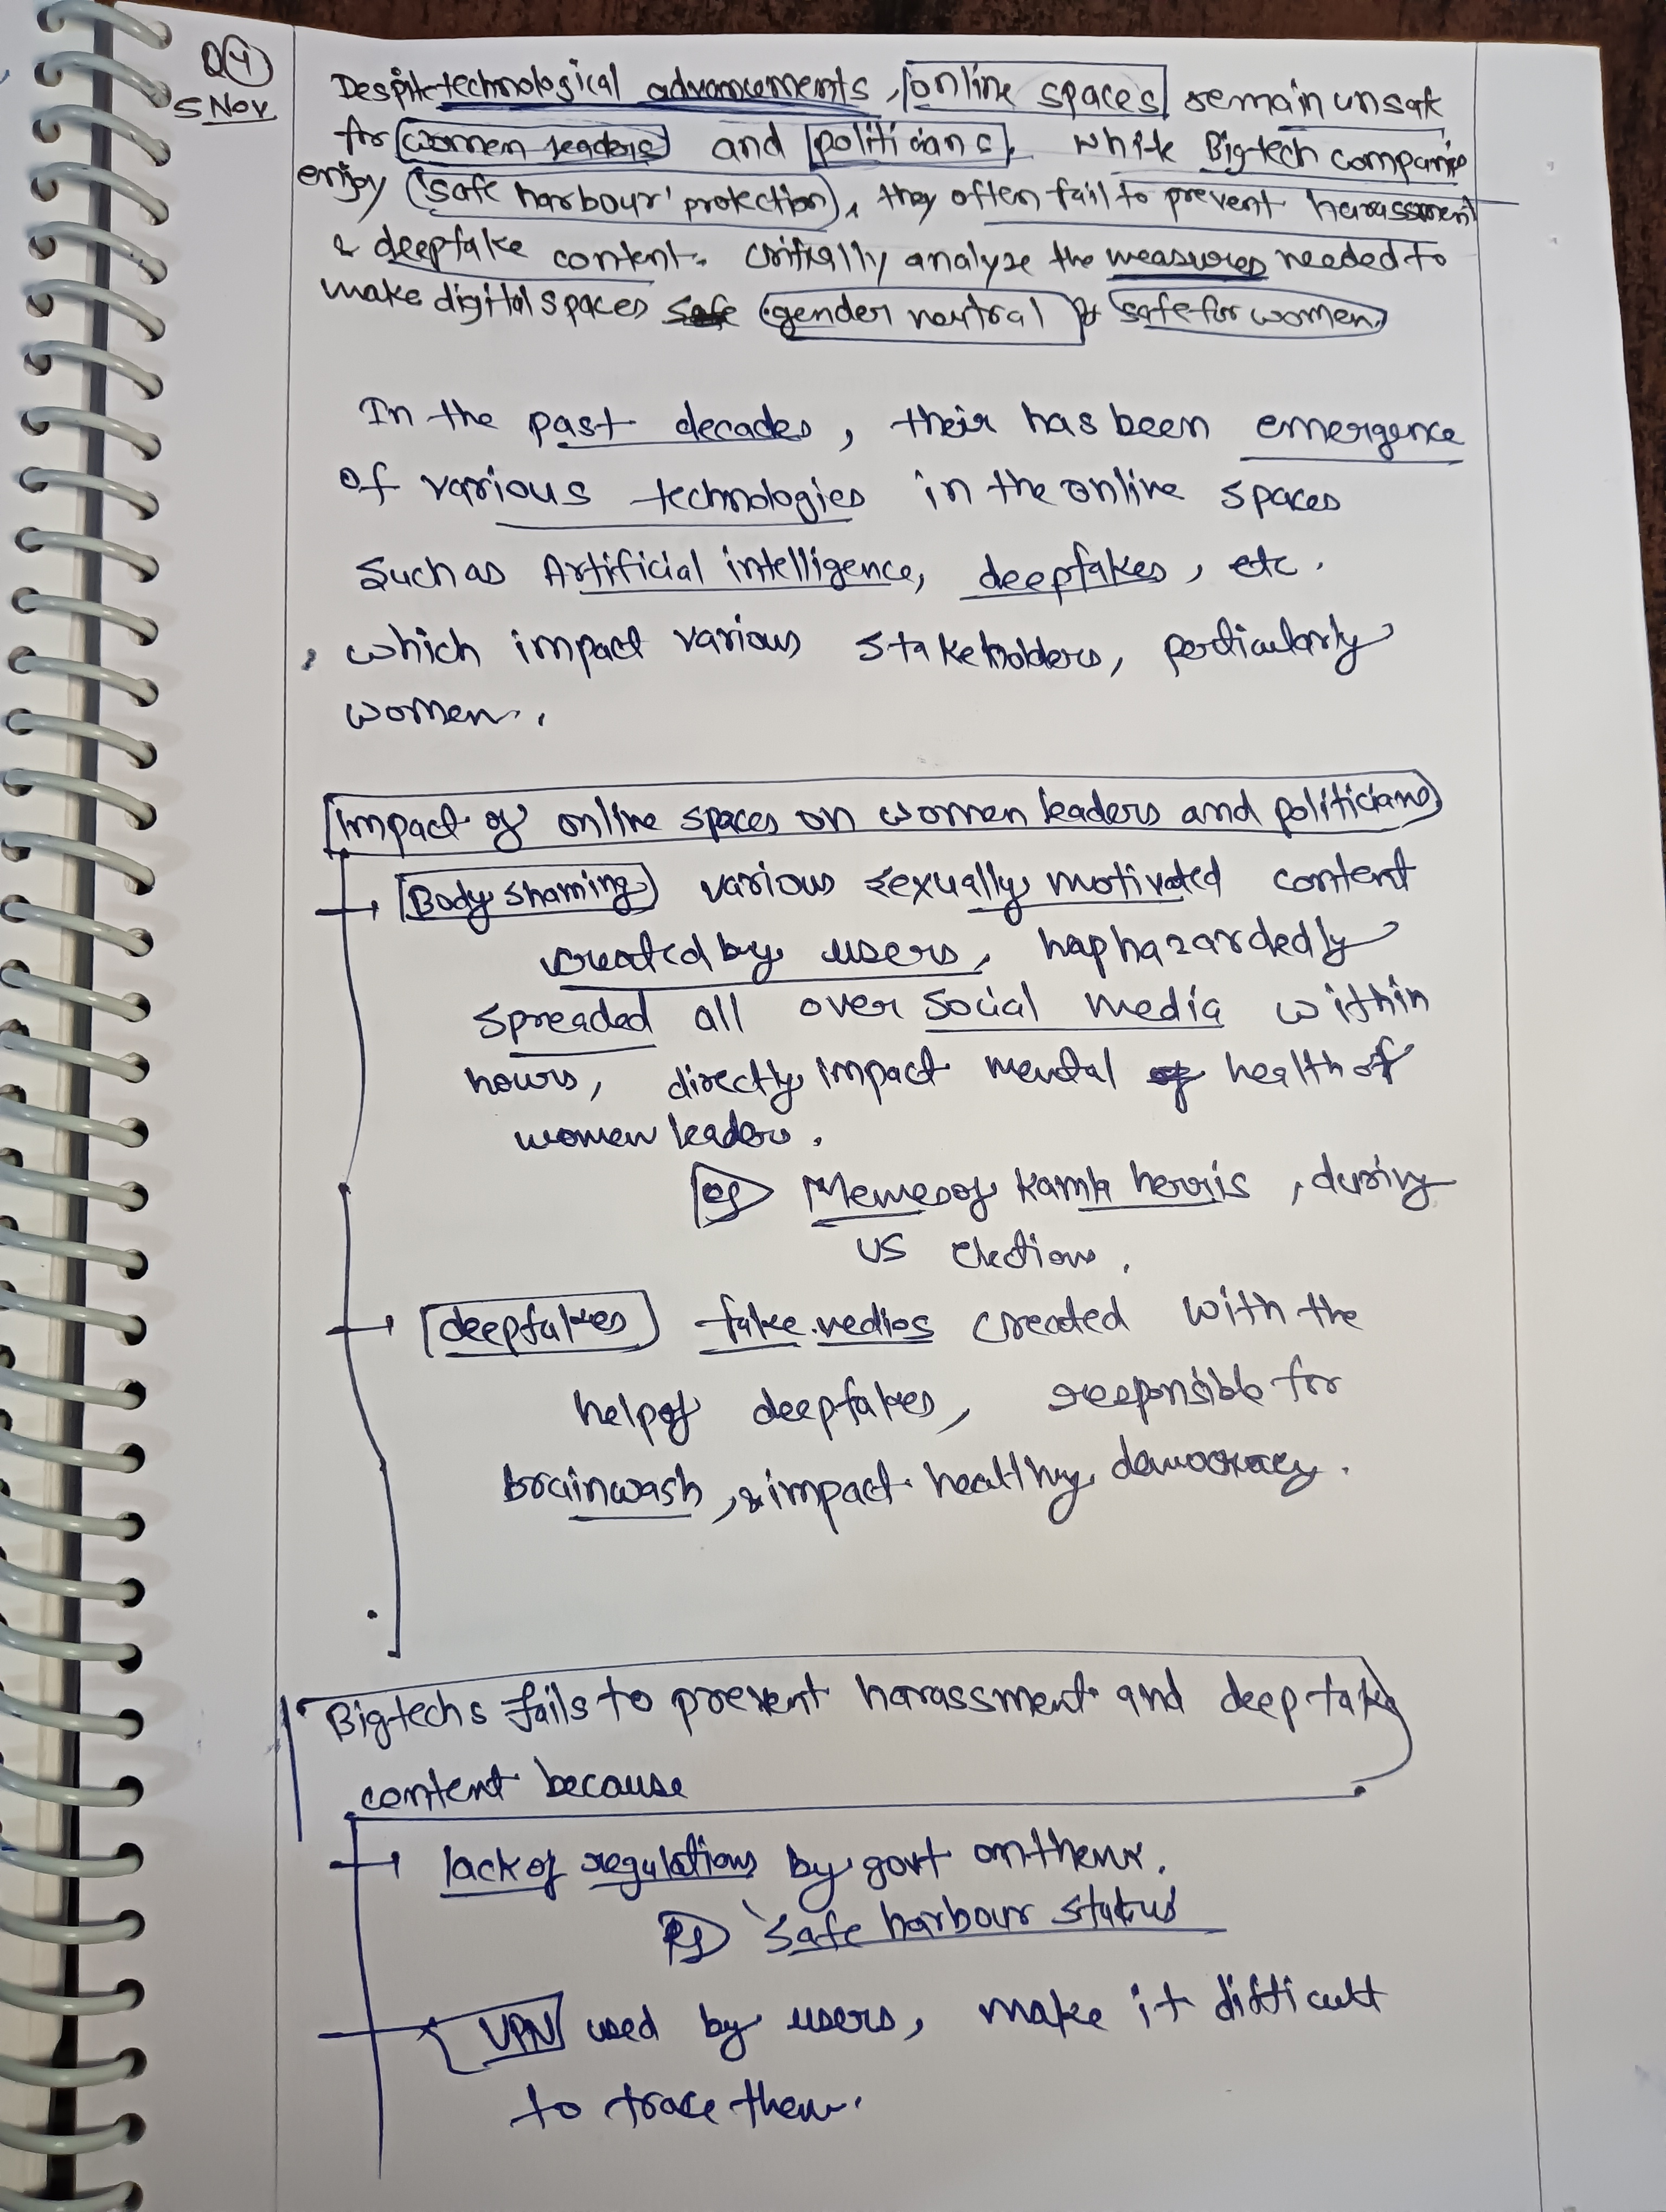 Q4
5 Nov
Despite technological advancements, online spaces remain unsafe
for women leaders and politicians, while Big tech companies
enjoy 'safe harbour' protection, they often fail to prevent harassment
& deepfake content. Critically analyze the measures needed to
make digital spaces gender neutral & safe for women.
In the past decades, their has been emergence
of various technologies in the online spaces
such as Artificial intelligence, deepfakes, etc.
which impact various stakeholders, perticularly
women.
Impact of online spaces on women leaders and politicians
Body shaming various sexually motivated content
created by users, haphazardedly
spreaded all over social media within
hours, directly impact mental health of
women leaders.
eg Memes of Kamla herris, during
US Elections.
deepfakes fake vedios created with the
help of deepfakes, responsible for
brainwash, & impact healthy democracy.
Bigtechs fails to prevent harassment and deepfake
content because
lack of regulations by govt on them.
Eg 'Safe harbour status'
VPN used by users, make it difficult
to trace them.